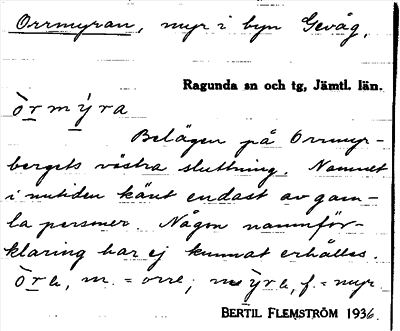 Orrmyran, myr i byn Gevåg,
Ragunda sn och tg, Jämtl. län.
òrmỳra
Belägen på Orrmyr-
bergets västra sluttning. Namnet
i nutiden känt endast av gam-
la personer. Någon namnför-
klaring har ej kunnat erhållas.
òra, m. = orre; mỳra, f. = myr.
BERTIL FLEMSTRÖM 1936.